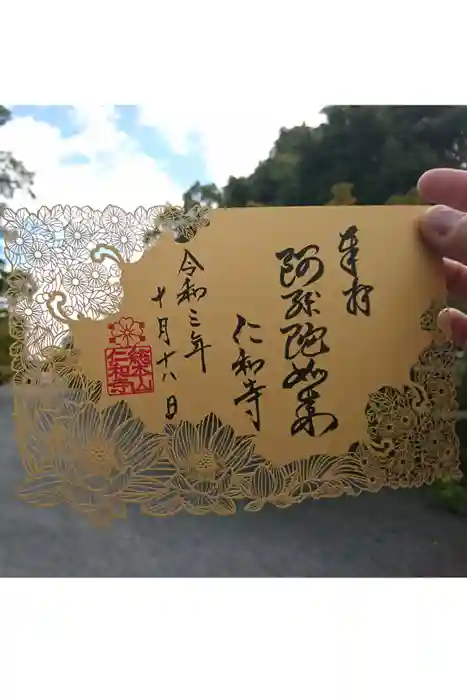 奉拝
阿弥陀如来
仁和寺
令和三年
十月十八日
総本山
仁和寺